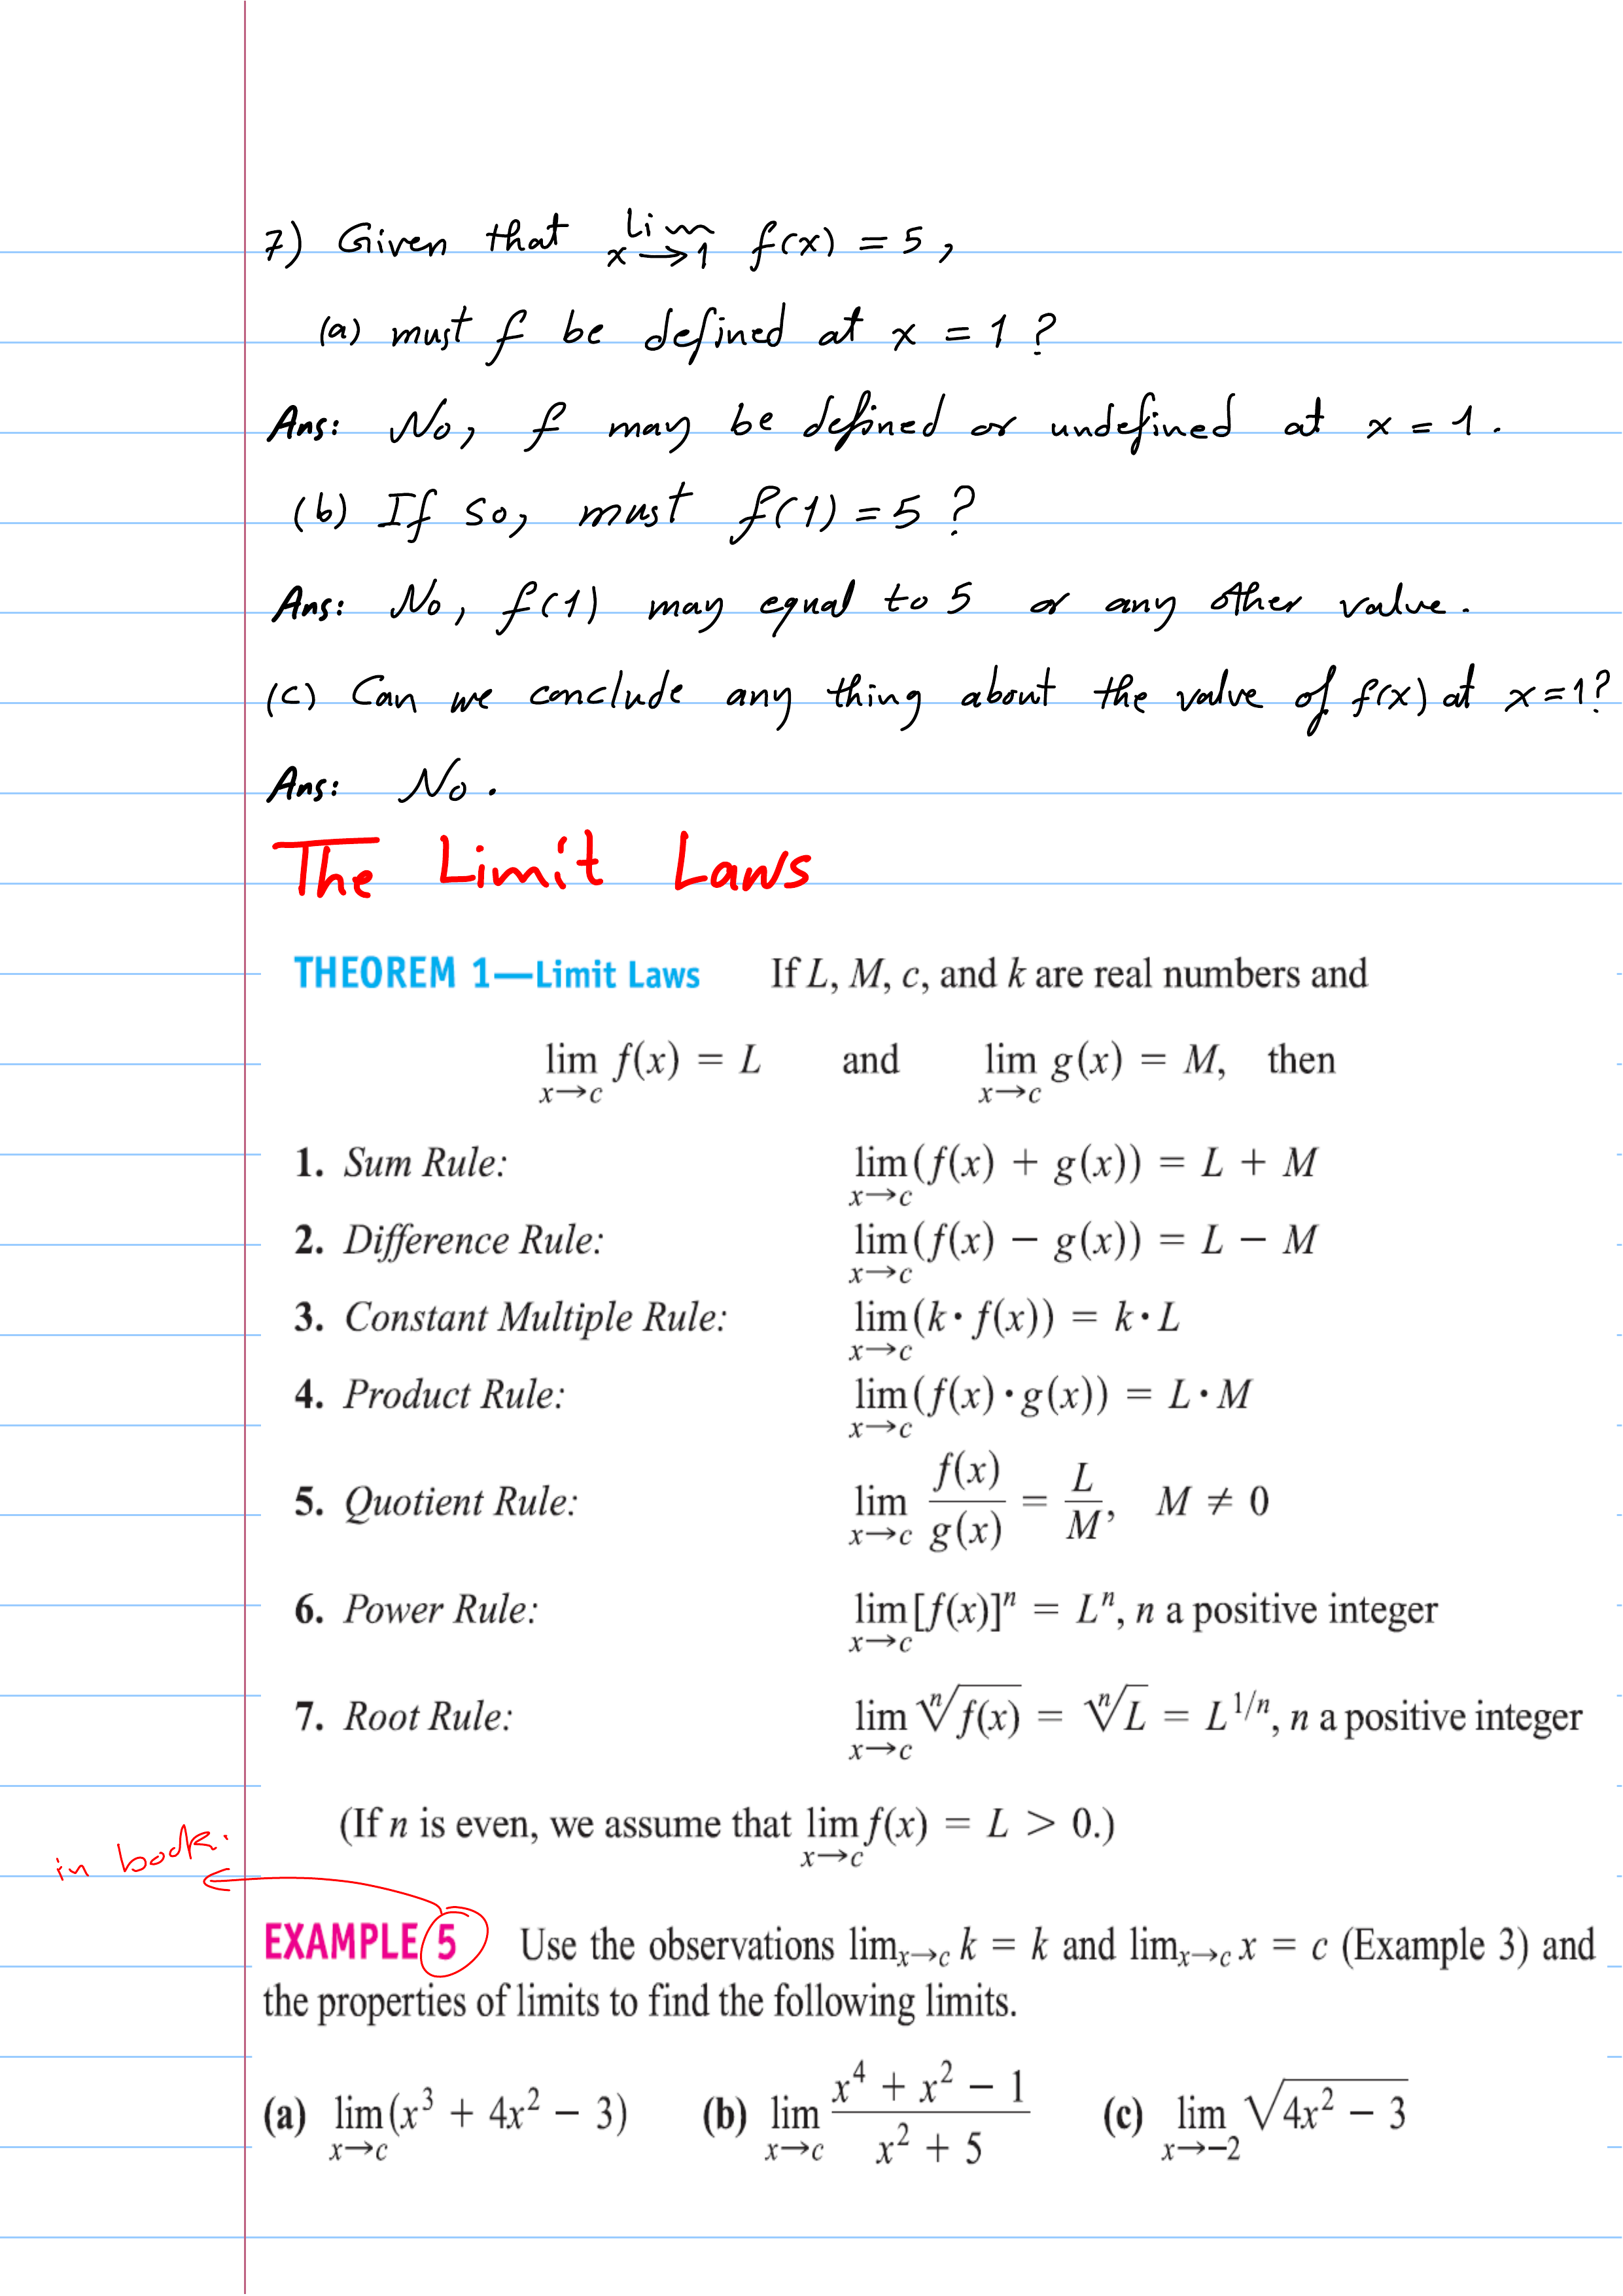 7) Given that lim x→1 f(x) = 5,
(a) must f be defined at x = 1 ?
Ans: No, f may be defined or undefined at x = 1.
(b) If so, must f(1) = 5 ?
Ans: No, f(1) may equal to 5 or any other value.
(c) Can we conclude any thing about the value of f(x) at x=1?
Ans: No.
The Limit Laws
THEOREM 1—Limit Laws If L, M, c, and k are real numbers and
lim x→c f(x) = L and lim x→c g(x) = M, then
1. Sum Rule: lim x→c (f(x) + g(x)) = L + M
2. Difference Rule: lim x→c (f(x) − g(x)) = L − M
3. Constant Multiple Rule: lim x→c (k · f(x)) = k · L
4. Product Rule: lim x→c (f(x) · g(x)) = L · M
5. Quotient Rule: lim x→c f(x)/g(x) = L/M, M ≠ 0
6. Power Rule: lim x→c [f(x)]ⁿ = Lⁿ, n a positive integer
7. Root Rule: lim x→c ⁿ√f(x) = ⁿ√L = L^(1/n), n a positive integer
(If n is even, we assume that lim x→c f(x) = L > 0.)
in book.
EXAMPLE 5 Use the observations lim x→c k = k and lim x→c x = c (Example 3) and
the properties of limits to find the following limits.
(a) lim x→c (x³ + 4x² − 3) (b) lim x→c (x⁴ + x² − 1)/(x² + 5) (c) lim x→−2 √(4x² − 3)